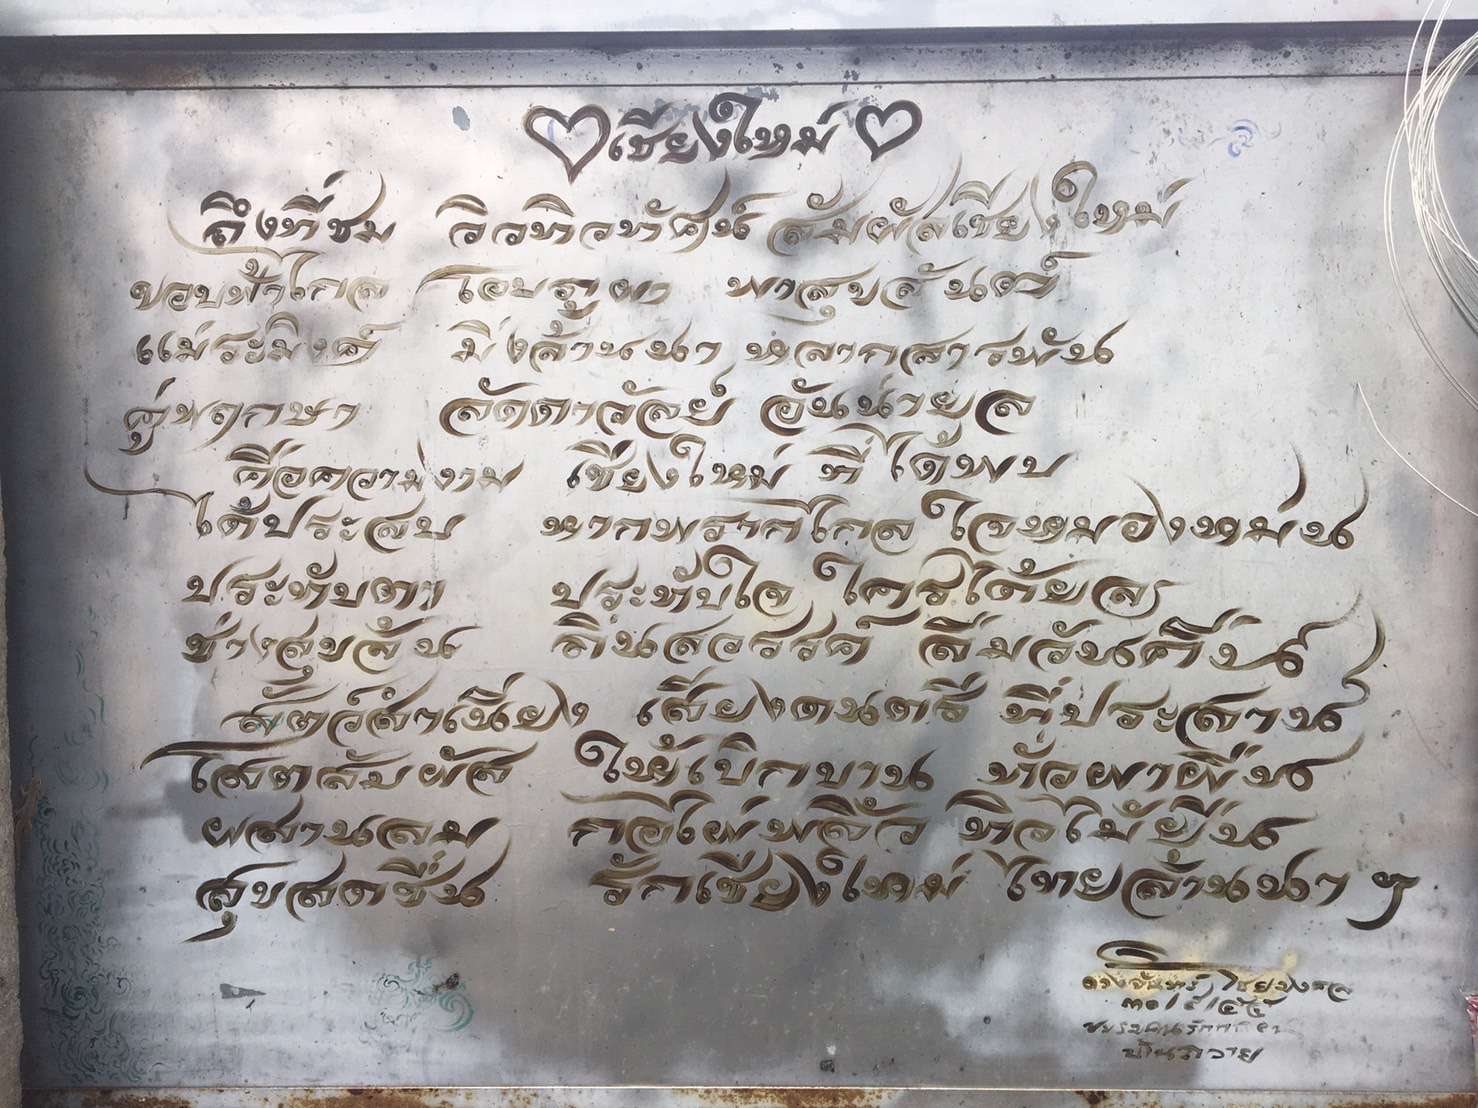 เชียงใหม่
ถึงที่ชม วิวทิวทัศน์ สัมผัสเชียงใหม่
ขอบฟ้าไกล โอบภูผา พาสุขสันต์
แม่ระมิงค์ มิ่งล้านนา หลากสารพัน
คู่พฤกษา ลัดดาวัลย์ อันน่ายล
คือความงาม เชียงใหม่ ที่ได้พบ
ได้ประสบ หากพรากไกล ใจหมองหม่น
ประทับตา ประทับใจ ใคร่ได้ยล
ช่างสุขล้น ถิ่นสวรรค์ ลืมวันคืน
สัตว์สำเนียง เสียงดนตรี ที่ประสาน
โสตสัมผัส ให้เบิกบาน ทั่วผาผืน
ผสานลม กอไผ่พลิ้ว ทิวไม้ยืน
สุขสดชื่น รักเชียงใหม่ ไทยล้านนา ฯ
ดวงจันทร์
บ้านถวาย